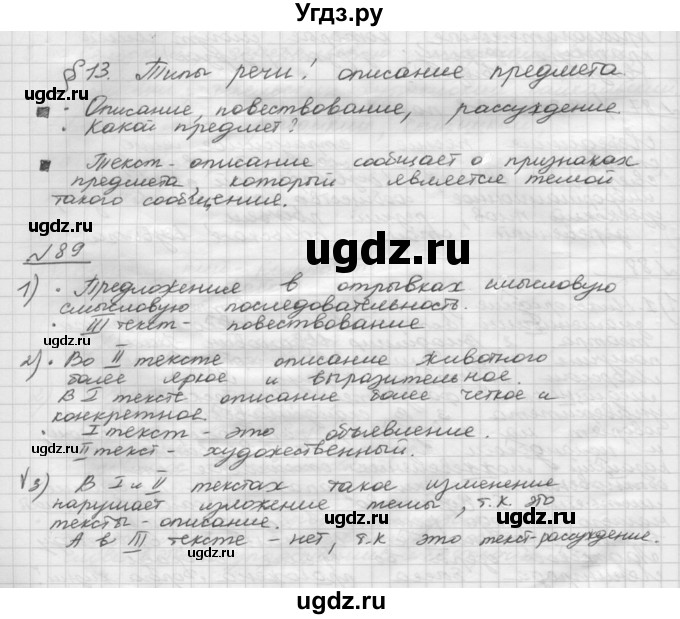 Угдз.ру
§ 13. Типы речи: описание предмета
ugdz.ru ugdz.ru
· Описание, повествование, рассуждение.
· Какой предмет?
Текст-описание сообщает о признаках
предмета, который является темой
такого сообщения.
ugdz.ru
ugdz.ru
№89
ugdz.ru
1) · Предложение в отрывках смысловую
смысловую последовательность.
· III текст - повествование
ugdz.ru
2) · Во II тексте описание животного
более яркое и выразительное.
В I тексте описание более четкое и
конкретное.
· I текст - это объявление.
II текст - художественный.
ugdz.ru
3) В I и II текстах такое изменение
нарушает изложение темы, т.к. это
тексты - описание.
ugdz.ru
А в III тексте - нет, т.к это текст-рассуждение.
ugdz.ru
ugdz.ru